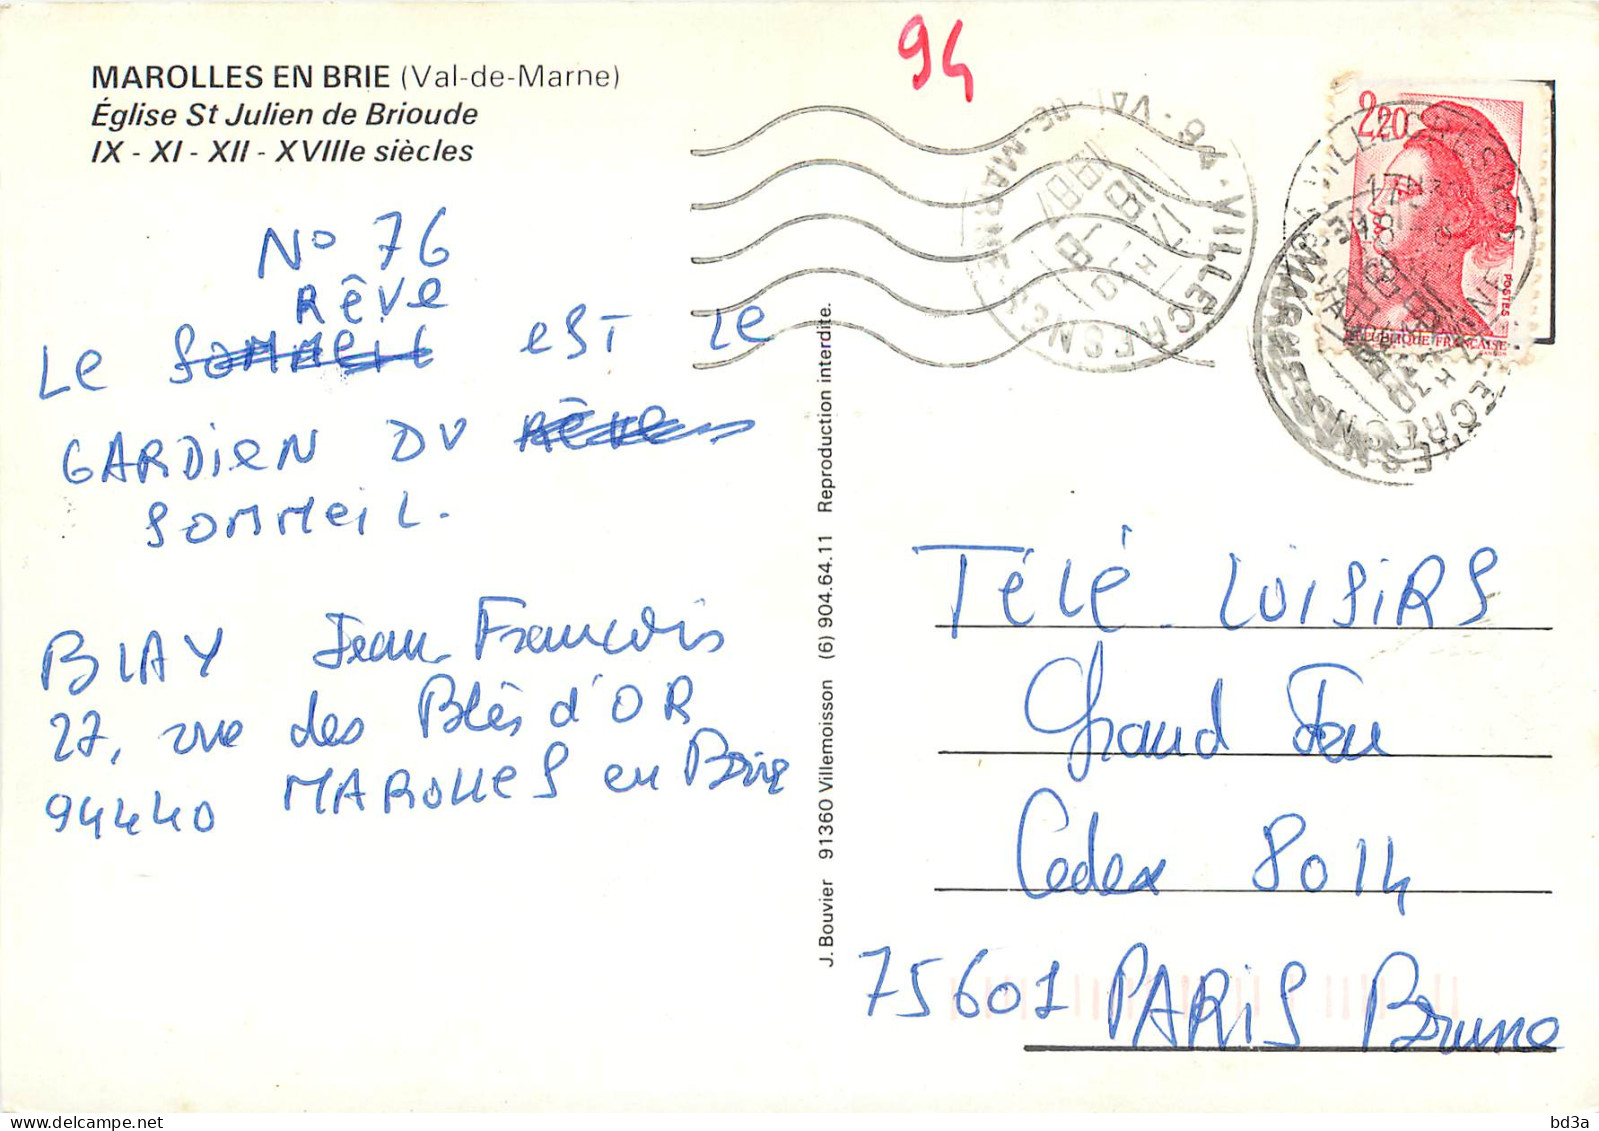 MAROLLES EN BRIE (Val-de-Marne)
Église St Julien de Brioude
IX - XI - XII - XVIIIe siècles
94
No 76
RêVe
Le Sommeil EST Le
GARDieN DU Rêve
SOMMeiL.
BLAY Jean-François
27, rue des Blés d'OR
94440 MAROLLeS en Brie
J. Bouvier 91360 Villemoisson (6) 904.64.11 Reproduction interdite.
94-VILLECRESNES
VAL DE-MARNE
17H
18-8
1987
2,20
POSTES
RÉPUBLIQUE FRANÇAISE
TéLé LOISIRS
Grand Jeu
Cedex 8014
75601 PARIS Brune
bd3a